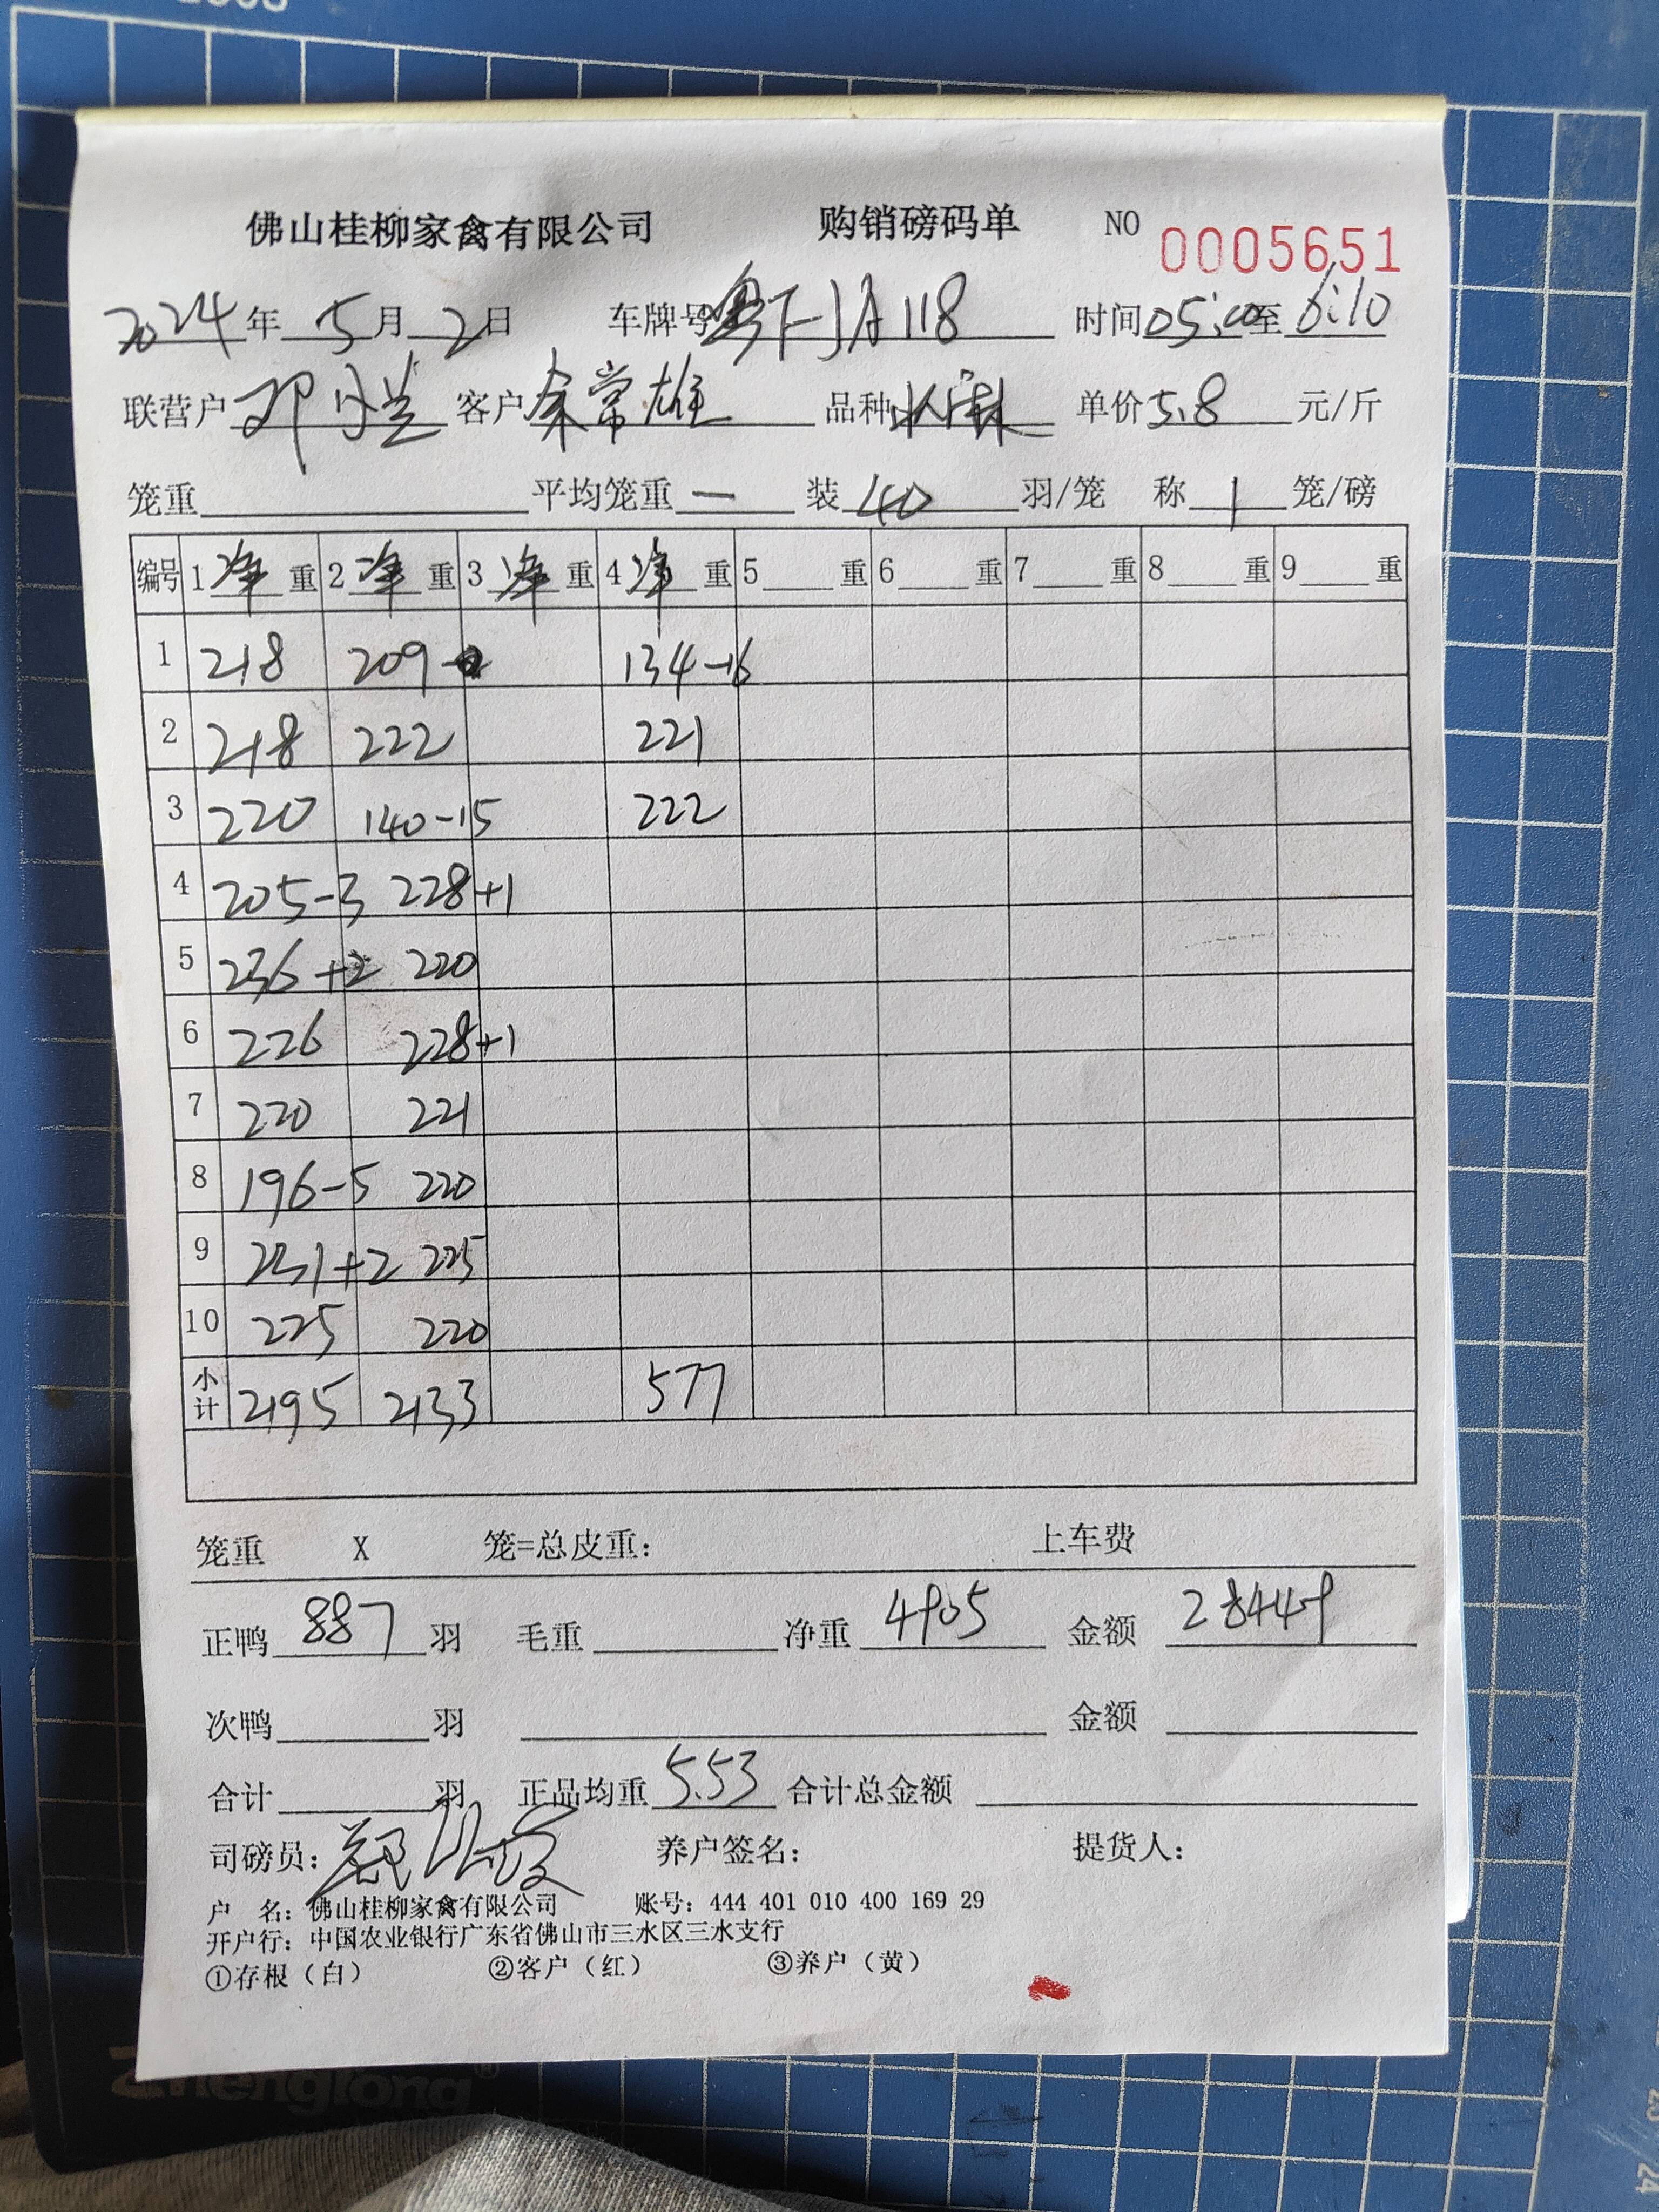 佛山桂柳家禽有限公司 购销磅码单 NO 0005651
2024年5月2日 车牌号 JA118 时间05:00至6:10
联营户 邓 客户余常雄 品种 单价5.8元/斤
笼重 平均笼重一 装40羽/笼 称1笼/磅
编号 1净重 2净重 3净重 4净重 5重 6重 7重 8重 9重
1 218 209 134-16
2 218 222 221
3 220 140-15 222
4 205-3 228+1
5 236+2 220
6 226 228+1
7 220 221
8 196-5 220
9 231+2 225
10 225 220
小计 2195 2133 577
笼重 X 笼=总皮重: 上车费
正鸭887羽 毛重 净重4905 金额28449
次鸭 羽 金额
合计 羽 正品均重5.53 合计总金额
司磅员: 养户签名: 提货人:
户 名: 佛山桂柳家禽有限公司 账号: 444 401 010 400 169 29
开户行: 中国农业银行广东省佛山市三水区三水支行
①存根（白） ②客户（红） ③养户（黄）
Zhenglong®